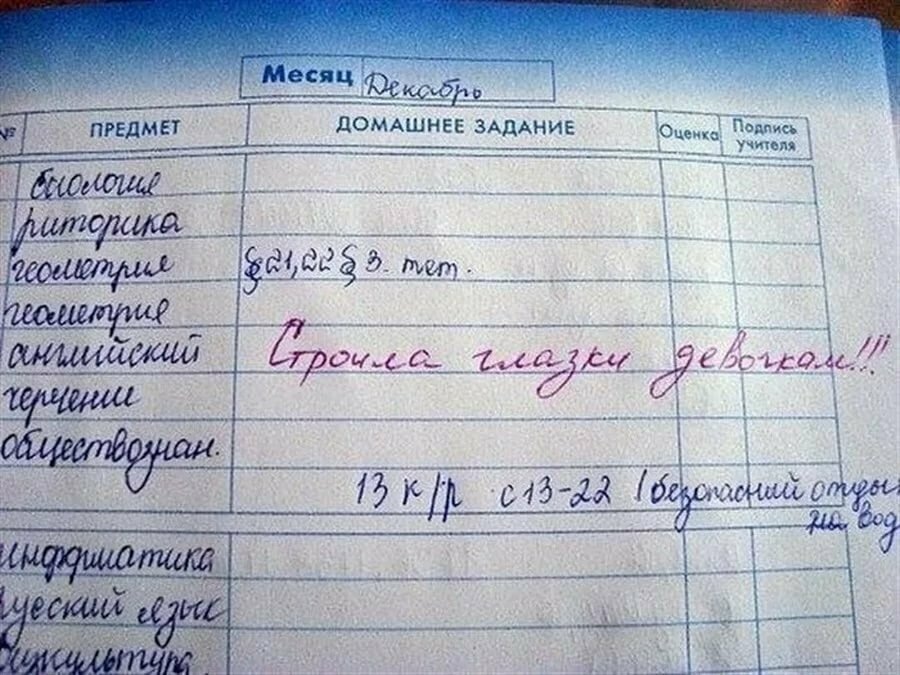 Месяц Декабрь
№ ПРЕДМЕТ ДОМАШНЕЕ ЗАДАНИЕ Оценка Подпись учителя
биология
риторика
геометрия §21,22 § 3. тет.
геометрия
английский Строила глазки девочкам!!!
черчение
обществознан.
13 к/р с 13-22 (безопасный отды
на вод
информатика
русский язык
физкультура